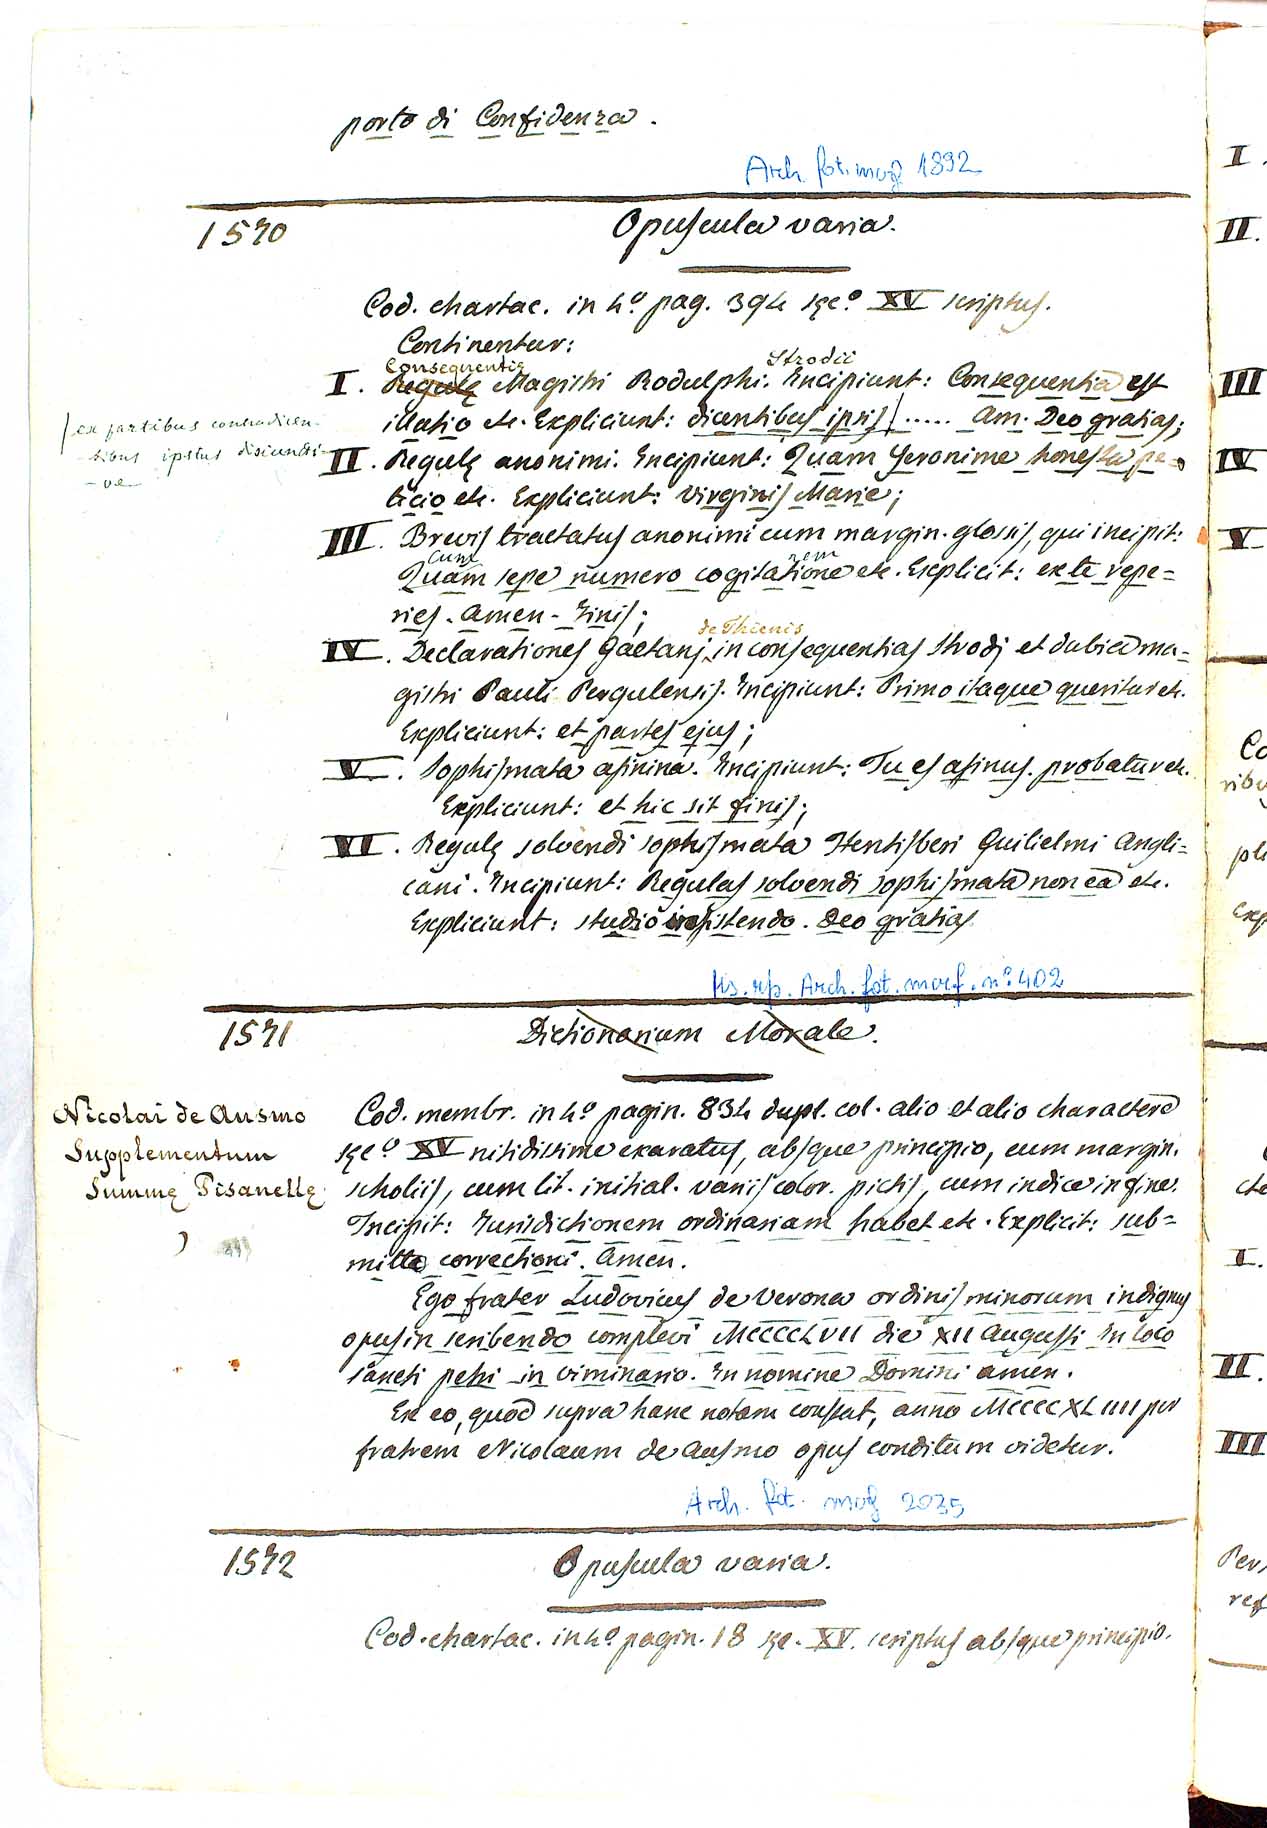 porto di Confidenza.
Arch. fot. morf 1892
1570 Opuscula varia.
Cod. chartac. in 4º pag. 394 sęcº XV scriptus.
Continentur:
Consequentię Strodii
I. Regulę Magistri Rodulphi. Incipiunt: Consequentia est
illatio etc. Expliciunt: dicentibus ipsis/..... Am. Deo gratias;
/ex partibus contradicen-
tibus ipsius disiuncti-
-ve
II. Regulę anonimi. Incipiunt: Quam Yeronime honesta pe-
ticio etc. Expliciunt: virginis Marie;
III. Brevis tractatus anonimi cum margin. glossis, qui incipit:
Cum nem
Quam sepe numero cogitatione etc. Explicit: ex te repe=
ries. Amen - Finis;
de Thienis
IV. Declarationes Gaetanj in consequentias Strodj et dubia ma=
gistri Pauli Pergulensis. Incipiunt: Primo itaque queritur etc.
Expliciunt: et partes ejus;
V. Sophismata asinina. Incipiunt: Tu es asinus. probatur etc.
Expliciunt: et hic sit finis;
VI. Regulę solvendi sophismata Hentisberi Guilielmi Angli=
cani. Incipiunt: Regulas solvendi sophismata non ea etc.
Expliciunt: studio insistendo. Deo gratias
Ms. rip. Arch. fot. morf. nº 402
1571 Dictionarium Morale.
Nicolai de Ausmo
Supplementum
Summę Pisanellę
Cod. membr. in 4º pagin. 834 dupl. col. alio et alio charactere
sęcº XV nitidissime exaratus, absque principio, cum margin.
scholiis, cum lit. initial. variis color. pictis, cum indice in fine.
Incipit: Jurisdictionem ordinariam habet etc. Explicit: sub=
mitto correctioni. Amen.
Ego frater Ludovicus de Verona ordinis minorum indignus
opus in scribendo complevi MCCCCLVII die XII Augusti In loco
sancti petri in viminario. In nomine Domini amen.
Ex eo, quod supra hanc notam constat, anno MCCCCXLIIII per
fratrem Nicolaum de Ausmo opus conditum videtur.
Arch. fot. morf 2035
1572 Opuscula varia.
Cod. chartac. in 4º pagin. 18 sęc. XV. scriptus absque principio.
I.
II.
III
IV
V
I.
II.
III